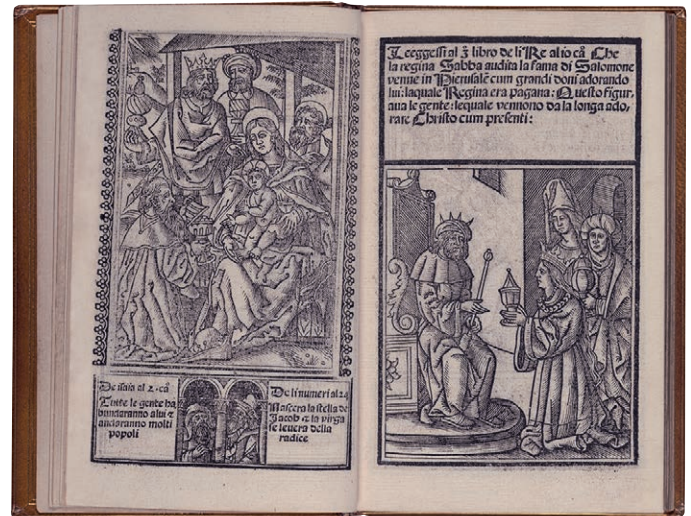 De isaia al 2. cã
Tutte le gente ha
bundaranno a lui &
andaranno molti
popoli
De li numeri al 24
Nascera la stella de
Jacob & la virga
se levera della
radice
Leeggessi al 3 libro de li Re al io cã Che
la regina Sabba audita la fama di Salomone
venne in Hierusalẽ cum grandi doni adorando
lui: laquale Regina era pagana: Questo figur,
aua le gente: lequale vennono da la longa ado,
rare Christo cum presenti: